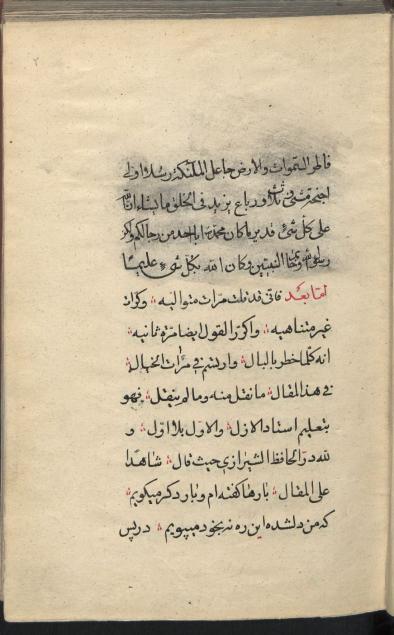 فاطر السموات والارض جاعل الملئكة رسلا اولی
اجنحة مثنی وثلاث ورباع یزید فی الخلق ما یشاء ان الله
علی کل شیء قدیر ما کان محمد ابا احد من رجالکم ولکن
رسول الله وخاتم النبیین وکان الله بکل شیء علیما
اما بعد فانی قد قلت مرات متوالیه وکرات
غیر متناهیه واکرر القول ایضا مرة ثانیه
انه کلما خطر بالبال وارتسم فی مرآت الخیال
فی هذا المقال ما نقل منه وما لم ینقل فهو
بتعلیم استاد الازل والاول بلا اول و
لله در الحافظ الشیرازی حیث قال شاهدا
علی المقال بارها کفته ام و بار دکر میکویم
که من دلشده این ره نه بخود میپویم در پس